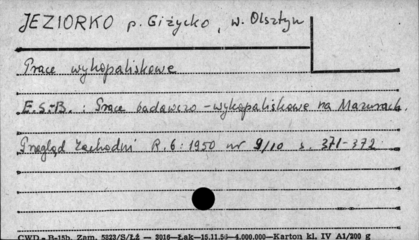 JEZIORKO p. Giżycko, w. Olsztyn
Prace wykopaliskowe
E.S-B.: Prace badawczo-wykopaliskowe na Mazurach.
Przegląd Zachodni R.6:1950 nr 9/10 s. 371-372
CWD - B-15h. Zam. 5323/S/Łż — 2016—Łąk—15.11.56—4.000.000—Karton kl. IV A1/200 g